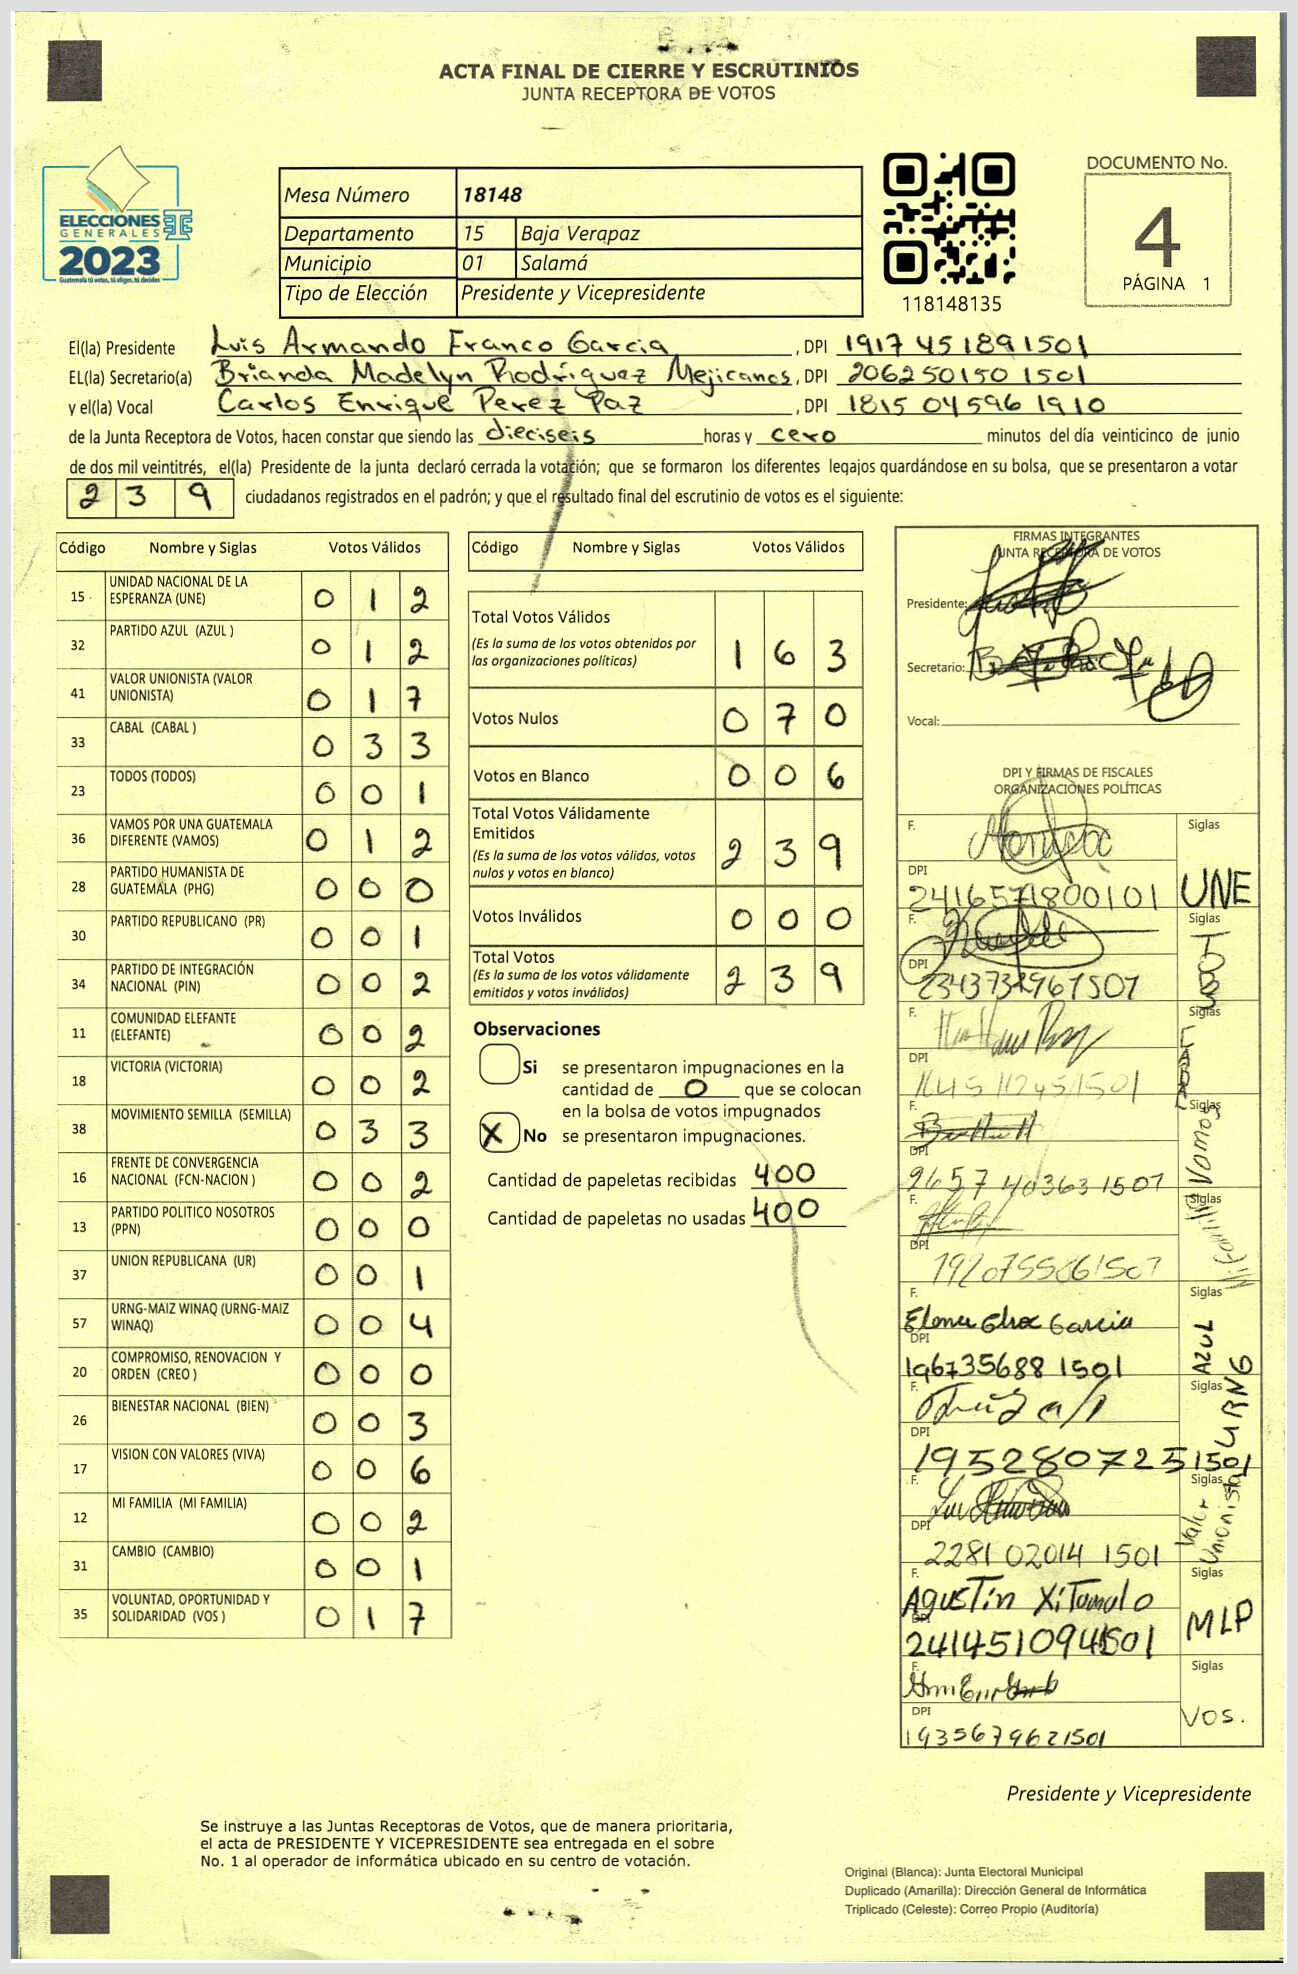 ACTA FINAL DE CIERRE Y ESCRUTINIOS
JUNTA RECEPTORA DE VOTOS
ELECCIONES
GENERALES
2023
Guatemala tú votas, tú eliges, tú decides
Mesa Número 18148
Departamento 15 Baja Verapaz
Municipio 01 Salamá
Tipo de Elección Presidente y Vicepresidente
118148135
DOCUMENTO No.
4
PÁGINA 1
El(la) Presidente Luis Armando Franco Garcia, DPI 1917 45189 1501
EL(la) Secretario(a) Brianda Madelyn Rodríguez Mejicanos, DPI 206250150 1501
y el(la) Vocal Carlos Enrique Perez Paz, DPI 1815 04596 1910
de la Junta Receptora de Votos, hacen constar que siendo las dieciseis horas y cero minutos del día veinticinco de junio
de dos mil veintitrés, el(la) Presidente de la junta declaró cerrada la votación; que se formaron los diferentes legajos quardándose en su bolsa, que se presentaron a votar
2 3 9 ciudadanos registrados en el padrón; y que el resultado final del escrutinio de votos es el siguiente:
Código Nombre y Siglas Votos Válidos
15 UNIDAD NACIONAL DE LA ESPERANZA (UNE) 0 1 2
32 PARTIDO AZUL (AZUL ) 0 1 2
41 VALOR UNIONISTA (VALOR UNIONISTA) 0 1 7
33 CABAL (CABAL ) 0 3 3
23 TODOS (TODOS) 0 0 1
36 VAMOS POR UNA GUATEMALA DIFERENTE (VAMOS) 0 1 2
28 PARTIDO HUMANISTA DE GUATEMALA (PHG) 0 0 0
30 PARTIDO REPUBLICANO (PR) 0 0 1
34 PARTIDO DE INTEGRACIÓN NACIONAL (PIN) 0 0 2
11 COMUNIDAD ELEFANTE (ELEFANTE) 0 0 2
18 VICTORIA (VICTORIA) 0 0 2
38 MOVIMIENTO SEMILLA (SEMILLA) 0 3 3
16 FRENTE DE CONVERGENCIA NACIONAL (FCN-NACION ) 0 0 2
13 PARTIDO POLITICO NOSOTROS (PPN) 0 0 0
37 UNION REPUBLICANA (UR) 0 0 1
57 URNG-MAIZ WINAQ (URNG-MAIZ WINAQ) 0 0 4
20 COMPROMISO, RENOVACION Y ORDEN (CREO ) 0 0 0
26 BIENESTAR NACIONAL (BIEN) 0 0 3
17 VISION CON VALORES (VIVA) 0 0 6
12 MI FAMILIA (MI FAMILIA) 0 0 2
31 CAMBIO (CAMBIO) 0 0 1
35 VOLUNTAD, OPORTUNIDAD Y SOLIDARIDAD (VOS ) 0 1 7
Código Nombre y Siglas Votos Válidos
Total Votos Válidos
(Es la suma de los votos obtenidos por las organizaciones políticas) 1 6 3
Votos Nulos 0 7 0
Votos en Blanco 0 0 6
Total Votos Válidamente Emitidos
(Es la suma de los votos válidos, votos nulos y votos en blanco) 2 3 9
Votos Inválidos 0 0 0
Total Votos
(Es la suma de los votos válidamente emitidos y votos inválidos) 2 3 9
Observaciones
Si se presentaron impugnaciones en la
cantidad de 0 que se colocan
en la bolsa de votos impugnados
X No se presentaron impugnaciones.
Cantidad de papeletas recibidas 400
Cantidad de papeletas no usadas 400
FIRMAS INTEGRANTES
JUNTA RECEPTORA DE VOTOS
Presidente:
Secretario:
Vocal:
DPI Y FIRMAS DE FISCALES
ORGANIZACIONES POLÍTICAS
F. Siglas
DPI
2416571800101 UNE
F. Siglas
DPI
F. Siglas
DPI
CABAL
F. Siglas
DPI
2657 40363 1507 Vamos
F. Siglas
DPI
F. Siglas
DPI
196735688 1501 AZUL
F. Siglas
DPI
1952807251501 URNG
F. Siglas
DPI
2281 02014 1501 Valor Unionista
F. Siglas
AgusTín XiTumulo
DPI
2414510941501 MLP
F. Siglas
DPI
1935679621501 VOS.
Presidente y Vicepresidente
Se instruye a las Juntas Receptoras de Votos, que de manera prioritaria,
el acta de PRESIDENTE Y VICEPRESIDENTE sea entregada en el sobre
No. 1 al operador de informática ubicado en su centro de votación.
Original (Blanca): Junta Electoral Municipal
Duplicado (Amarilla): Dirección General de Informática
Triplicado (Celeste): Correo Propio (Auditoría)